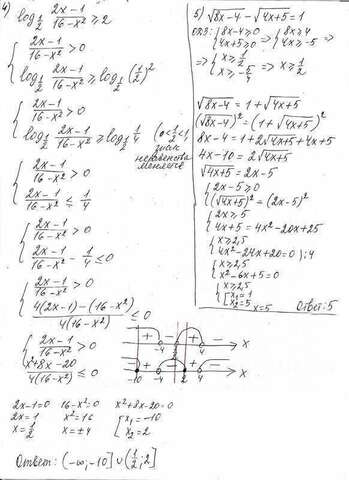 4) log_{1/2} (2x-1)/(16-x²) ≥ 2
{ (2x-1)/(16-x²) > 0
log_{1/2} (2x-1)/(16-x²) ≥ log_{1/2} (1/2)²
{ (2x-1)/(16-x²) > 0
log_{1/2} (2x-1)/(16-x²) ≥ log_{1/2} 1/4 (0<1/2<1, знак неравенства меняется)
{ (2x-1)/(16-x²) > 0
(2x-1)/(16-x²) ≤ 1/4
{ (2x-1)/(16-x²) > 0
(2x-1)/(16-x²) - 1/4 ≤ 0
{ (2x-1)/(16-x²) > 0
(4(2x-1)-(16-x²))/(4(16-x²)) ≤ 0
{ (2x-1)/(16-x²) > 0
(x²+8x-20)/(4(16-x²)) ≤ 0
+ - + - x
-4 1/2 4
- + - + - x
-10 -4 2 4
2x-1=0 16-x²=0 x²+8x-20=0
2x=1 x²=16 [ x₁=-10
x=1/2 x=±4 x₂=2
Ответ: (-∞;-10] ∪ (1/2;2]
5) √(8x-4) - √(4x+5) = 1
ОДЗ: { 8x-4≥0 => { 8x≥4 =>
4x+5≥0 4x≥-5
=> { x≥1/2 => x≥1/2
x≥-5/4
√(8x-4) = 1+√(4x+5)
(√(8x-4))² = (1+√(4x+5))²
8x-4 = 1+2√(4x+5)+4x+5
4x-10 = 2√(4x+5)
√(4x+5) = 2x-5
{ 2x-5≥0
(√(4x+5))² = (2x-5)²
{ 2x≥5
4x+5 = 4x²-20x+25
{ x≥2,5
4x²-24x+20=0 |:4
{ x≥2,5
x²-6x+5=0
{ x≥2,5
[ x₁=1
x₂=5 x=5 Ответ: 5